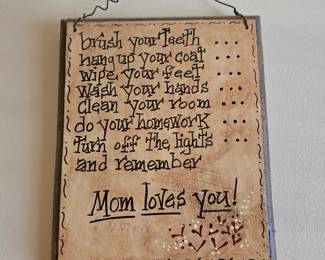 brush your teeth ...
hang up your coat ...
wipe your feet ...
wash your hands ...
clean your room ...
do your homework ...
turn off the lights ...
and remember
Mom loves you!